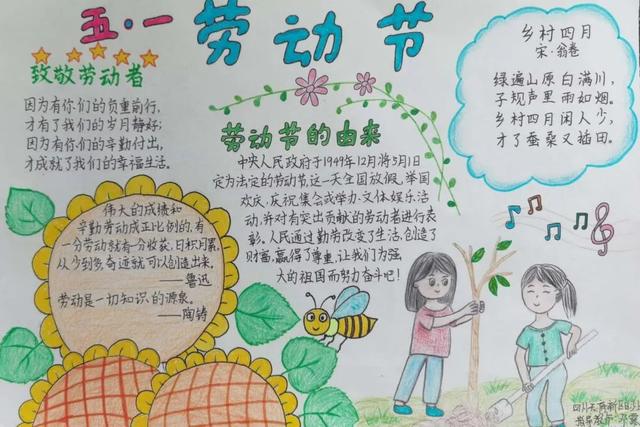 五·一 劳动节
致敬劳动者
因为有你们的负重前行,
才有了我们的岁月静好;
因为有你们的辛勤付出,
才成就了我们的幸福生活。
伟大的成绩和
辛勤劳动成正比例的,有
一分劳动就有一分收获,日积月累,
从少到多奇迹就可以创造出来。
——鲁迅
劳动是一切知识的源泉。
——陶铸
劳动节的由来
中央人民政府于1949年12月将5月1日
定为法定的劳动节,这一天全国放假,举国
欢庆,庆祝集会或举办文体娱乐活
动,并对有突出贡献的劳动者进行表
彰。人民通过勤劳改变了生活,创造了
财富,赢得了尊重,让我们为强
大的祖国而努力奋斗吧!
乡村四月
宋·翁卷
绿遍山原白满川,
子规声里雨如烟。
乡村四月闲人少,
才了蚕桑又插田。
指导教师:邓